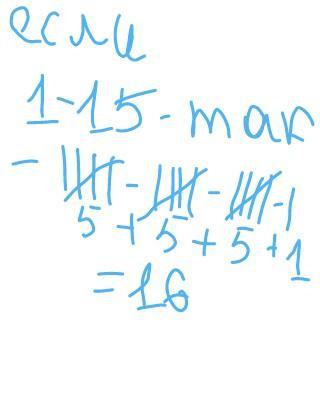 если
1-15-так
- 𝍸 - 𝍸 - 𝍸 - |
5 + 5 + 5 + 1
= 16